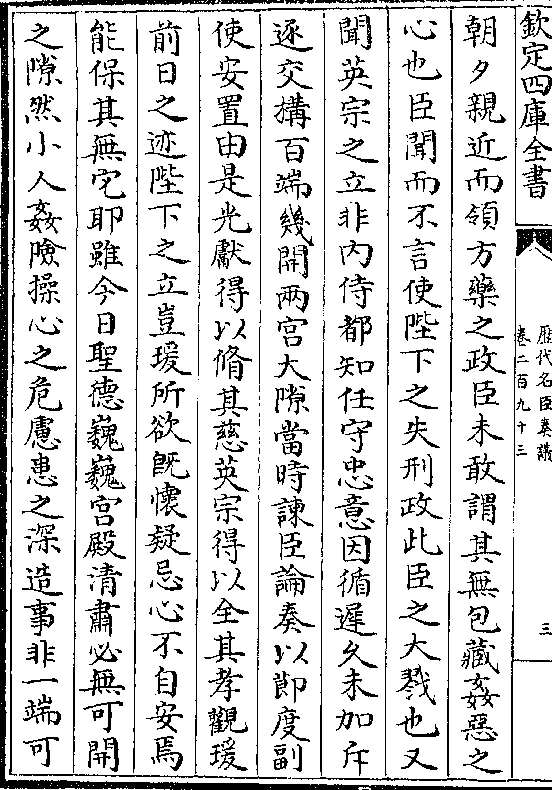 欽定四庫全書
歷代名臣奏議
卷二百九十三
三
朝夕親近而領方藥之政臣未敢謂其無包藏姦惡之
心也臣聞而不言使陛下之失刑政此臣之大戮也又
聞英宗之立非内侍都知任守忠意因循遲久未加斥
逐交搆百端幾開兩宮大隙當時諫臣論奏以節度副
使安置由是光獻得以脩其慈英宗得以全其孝觀瑗
前日之迹陛下之立豈瑗所欲旣懷疑忌心不自安焉
能保其無宅耶雖今日聖德巍巍宮殿清肅必無可開
之隙然小人姦險操心之危慮患之深造事非一端可